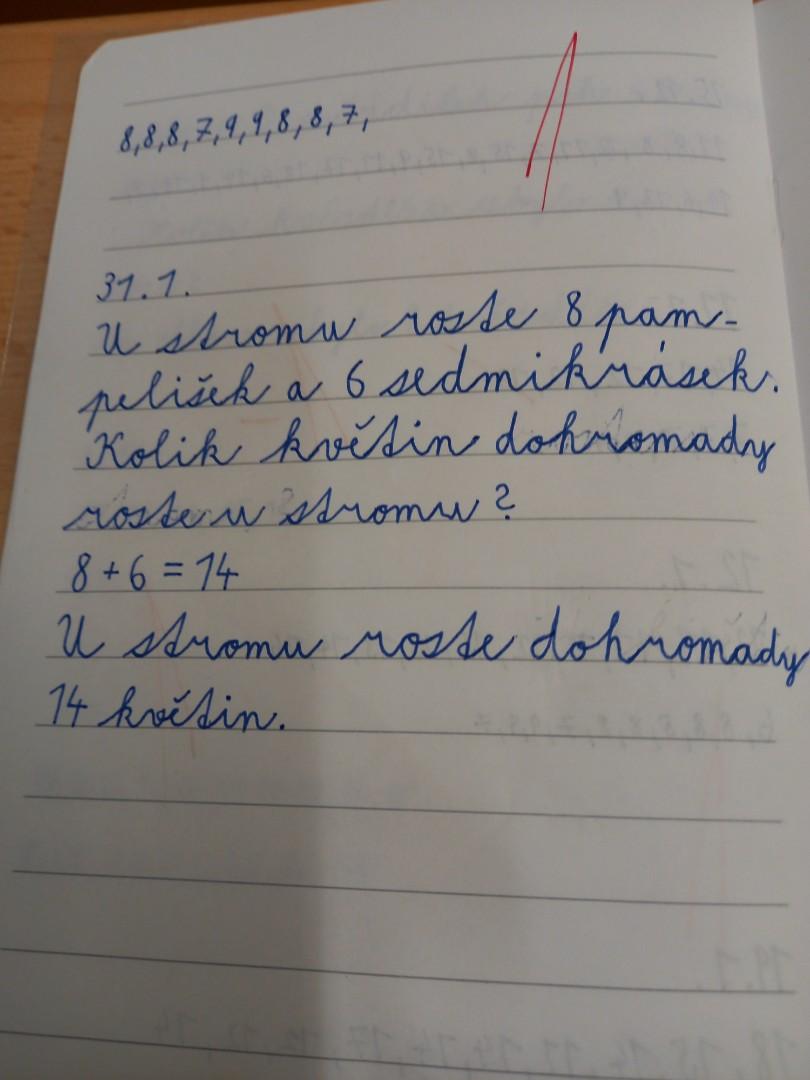 8,8,8,7,9,9,8,8,7,
1
31.1.
U stromu roste 8 pam-
pelišek a 6 sedmikrásek.
Kolik květin dohromady
roste u stromu?
8 + 6 = 14
U stromu roste dohromady
14 květin.